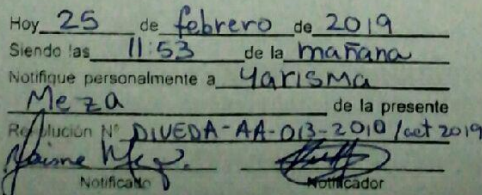 Hoy 25 de febrero de 2019
Siendo las 11:53 de la mañana
Notifique personalmente a Yarisma
Meza de la presente
Resolución N° DIVEDA-AA-013-2010/act 2019
Notificado Notificador